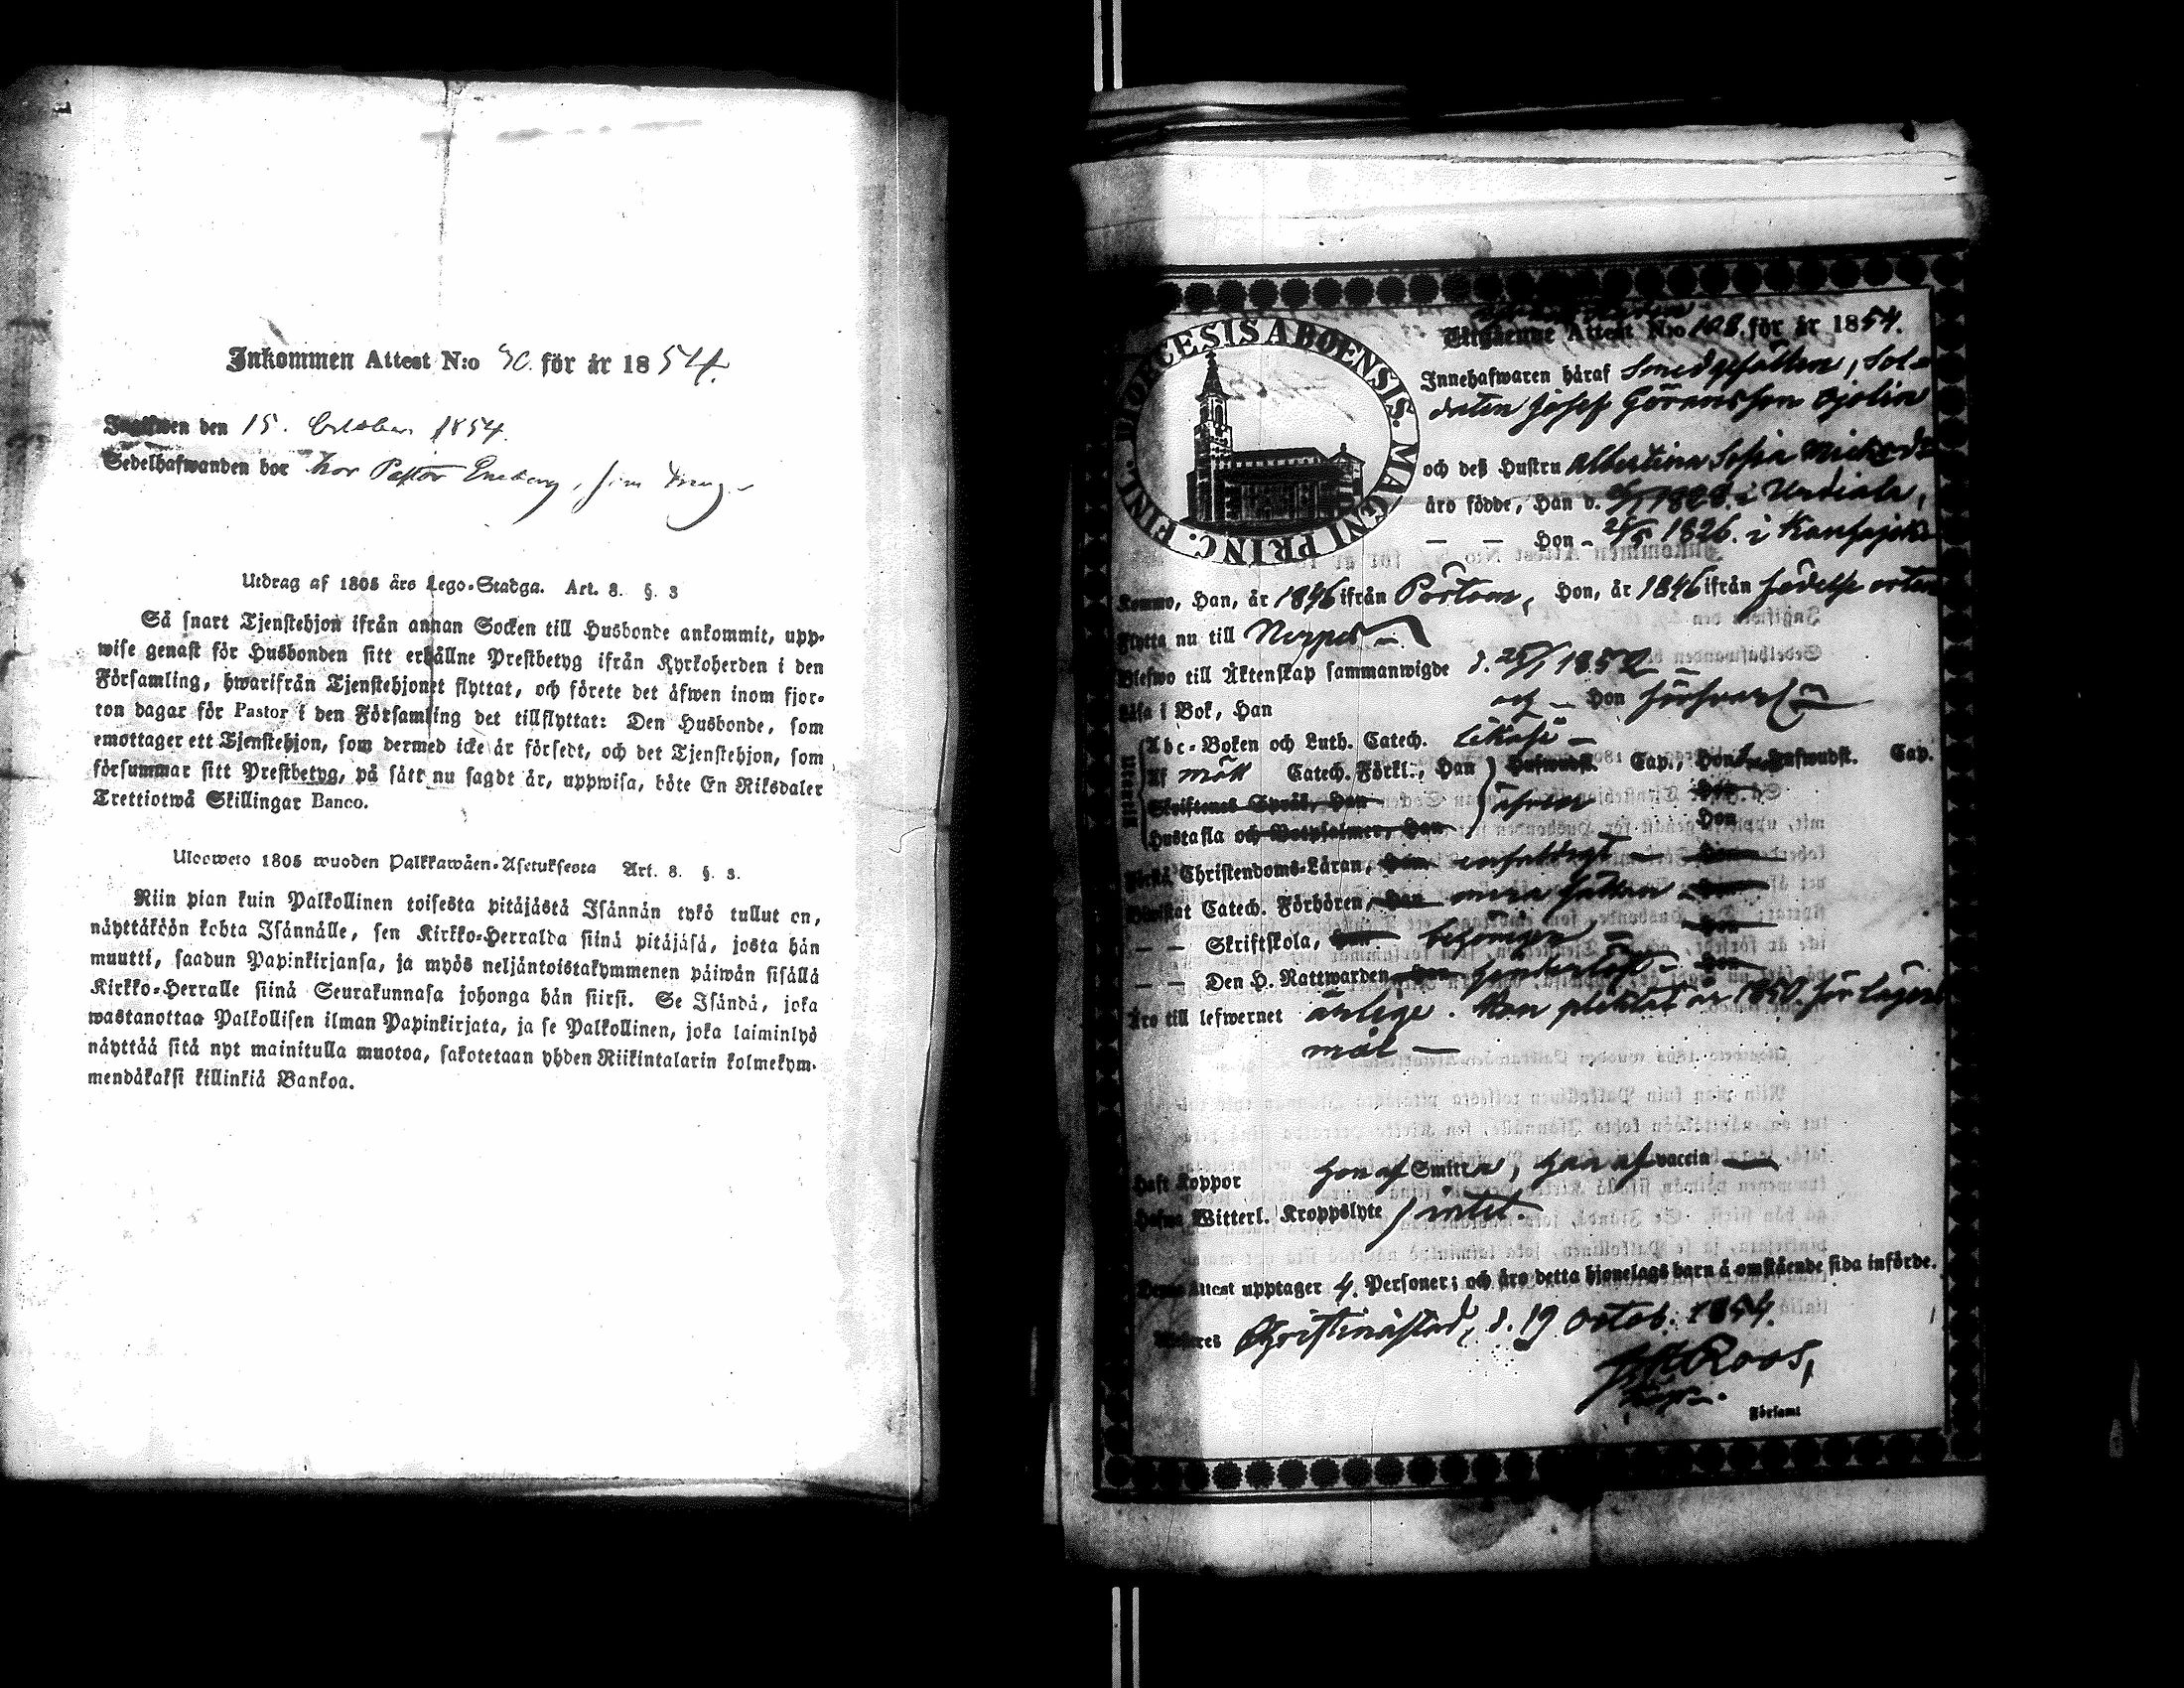 Inkommen Attest N:o 90. för år 1854.
den 15. October 1854.
Sedelhafwanden bor hos Pastor
Utdrag af 1805 års Lego-Stadga. Art. 8. §. 3
Så snart Tjenstehjon ifrån annan Socken till Husbonde ankommit, upp-
wise genast för Husbonden sitt erhållne Prestbetyg ifrån Kyrkoherden i den
Församling, hwarifrån Tjenstehjonet flyttat, och förete det äfwen inom fjor-
ton dagar för Pastor i den Församling det tillflyttat: Den Husbonde, som
emottager ett Tjenstehjon, som dermed icke är försedt, och det Tjenstehjon, som
försummar sitt Prestbetyg, på sätt nu sagdt är, uppwisa, böte En Riksdaler
Trettiotwå Skillingar Banco.
Ulosweto 1805 wuoden Palkkawäen-Asetuksesta Art. 8. §. 3.
Niin pian kuin Palkollinen toisesta pitäjästä Isännän tykö tullut on,
näyttäköön kohta Isännälle, sen Kirkko-Herralda siinä pitäjäsä, josta hän
muutti, saadun Papinkirjansa, ja myös neljäntoistakymmenen päiwän sisällä
Kirkko-Herralle siinä Seurakunnasa johonga hän siirsi. Se Isändä, joka
wastanottaa Palkollisen ilman Papinkirjata, ja se Palkollinen, joka laiminlyö
näyttää sitä nyt mainitulla muotoa, sakotetaan yhden Riikintalarin kolmekym-
mendäkaksi killinkiä Bankoa.
DIOECESIS ABOENSIS. MAGNI PRINC. FINL.
Utgående Attest N:o 108. för år 1854.
Innehafwaren häraf Smedgesällen, Sol-
daten Josef Göransson Bjolin
och deß Hustru Albertina Sofia
äro födde, Han d. 1828. i Urdiala,
— — Hon - 25/5 1826. i
Kommo, Han, år 1846 ifrån Pörtom, Hon, år 1846 ifrån födelse orten
Flytta nu till Nerpes
Blefwo till Äktenskap sammanwigde d. 1852
Läsa i Bok, Han och Hon försvarl.
Utantill Abc-Boken och Luth. Catech. likaså
Af mått Catech. Förkl., Han Hufwudst. Cap., Hon Hufwudst. Cap.
Skriftenes Språk, Han äfven Hon
Hustafla och Botpsalmer, Han Hon
Förstå Christendoms-Läran, Han enfaldigt Hon
Bewistat Catech. Förhören, Han mera sällan Hon
— — Skriftskola, Han Hon
— — Den H. Nattwarden, Han Hon
Äro till lefwernet ärlige. Han pliktat år 1850. för läger-
mål
Haft Koppor hon af Smitta, han af vaccin
Hafwa Witterl. Kroppslyte intet.
Denna Attest upptager 4. Personer; och äro detta hjonelags barn å omstående sida införde.
Christinæstad, d. 19 Octob. 1854.
Roos,
Församl